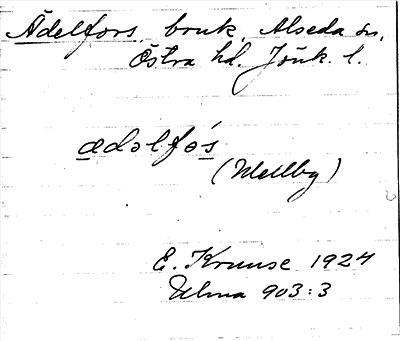 Ädelfors, bruk, Alseda sn,
Östra hd. Jönk. l.
ædəlfɷ́s
(Mellby)
E. Kruuse 1924
Ulma 903:3